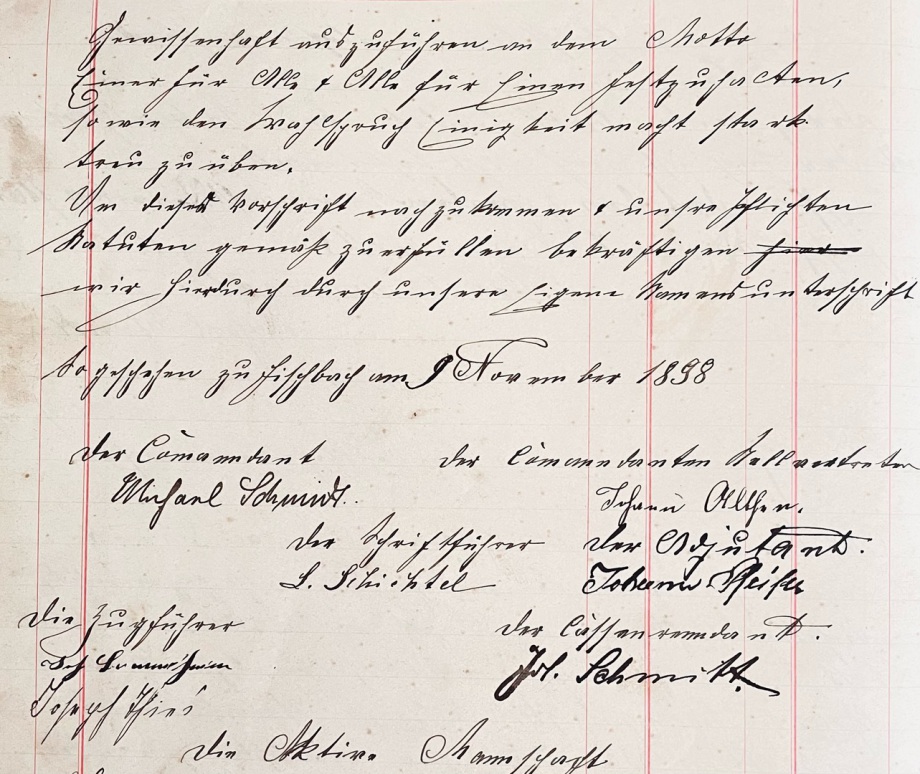 Gewissenhaft auszuführen an dem Motto
Einer für Alle & Alle für Einen festzuhalten,
sowie den Wahlspruch Einigkeit macht stark
treu zu üben.
Um dieser Vorschrift nachzukommen & unsre Pflichten
Statuten gemäß zu erfüllen bekräftigen hier
wir hierdurch durch unsere Eigene Namensunterschrift
So geschehen zu Fischbach am 9 November 1898
Der Comanndant der Comanndanten Stellvertreter
Michael Schmidt. Johann Allhen.
Der Schriftführer der Adjutant.
L. Schichtel Johann
Die Zugführer der Cassenrenndant.
Joh. Schmitt.
Joseph Thies
Die Aktive Mannschaft